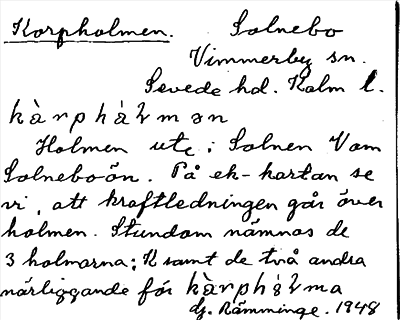 Korpholmen. Solnebo
Vimmerby sn.
Sevede hd. Kalm l.
kàrphålmən
Holmen ute i Solnen Vom
Solneboön. På ek-kartan se
vi, att kraftledningen går över
holmen. Stundom nämnas de
3 holmarna: K samt de två andra
närliggande för kàrphålma
G. Rämminge. 1948